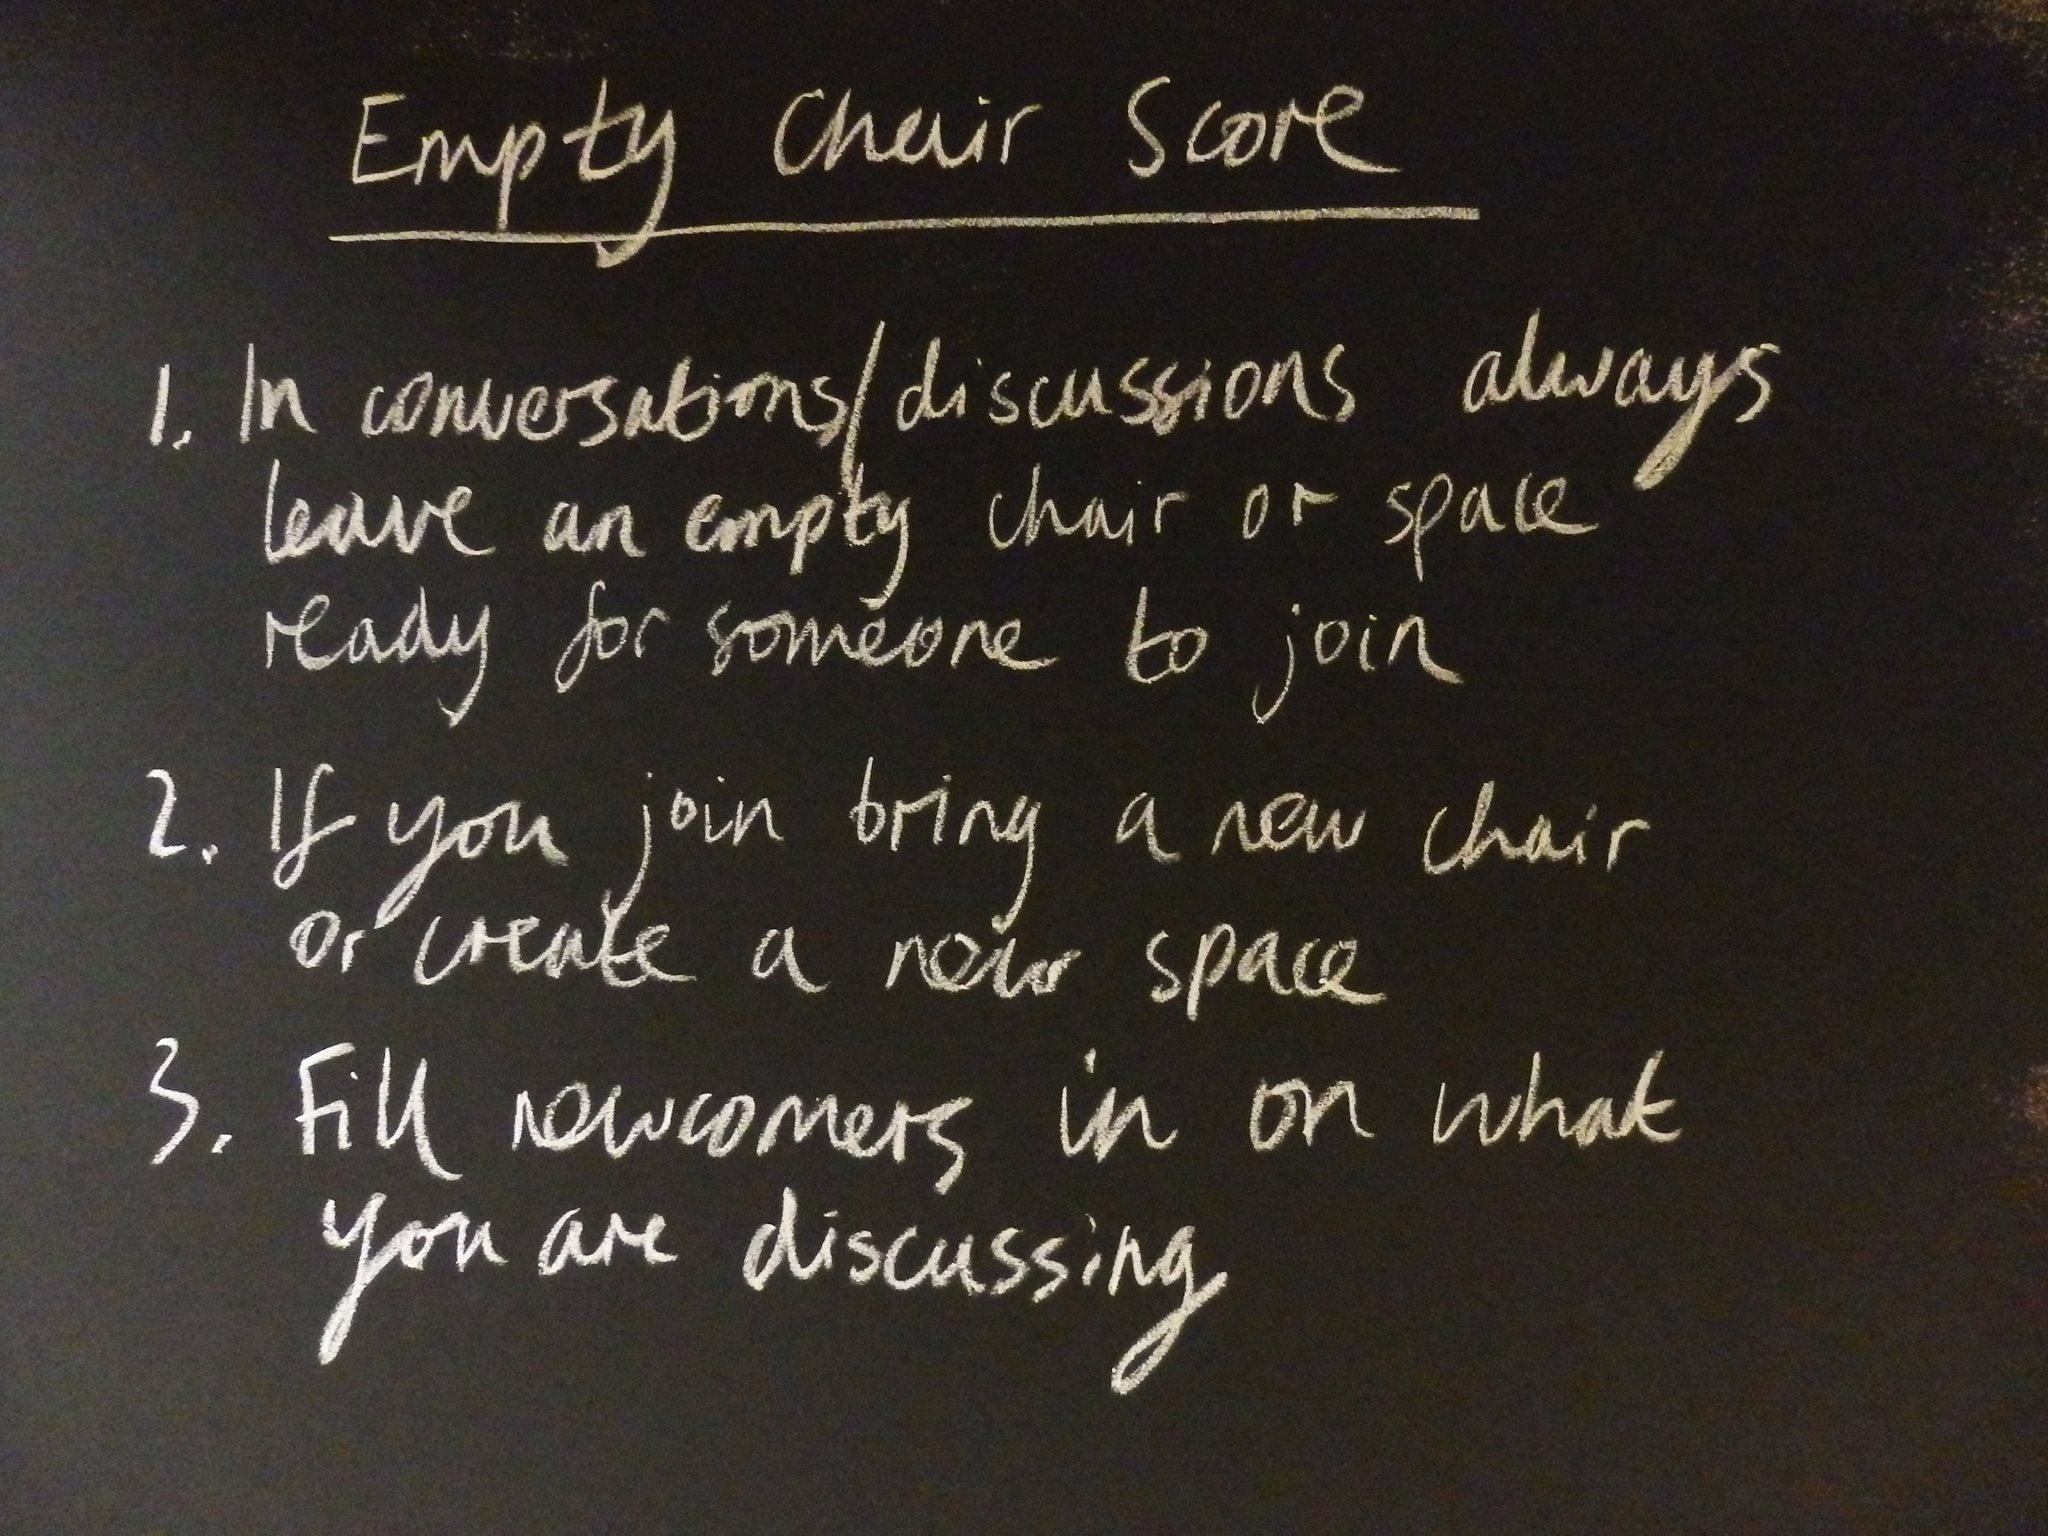 Empty Chair Score
1. In conversations/discussions always
leave an empty chair or space
ready for someone to join
2. If you join bring a new chair
or create a new space
3. Fill newcomers in on what
you are discussing